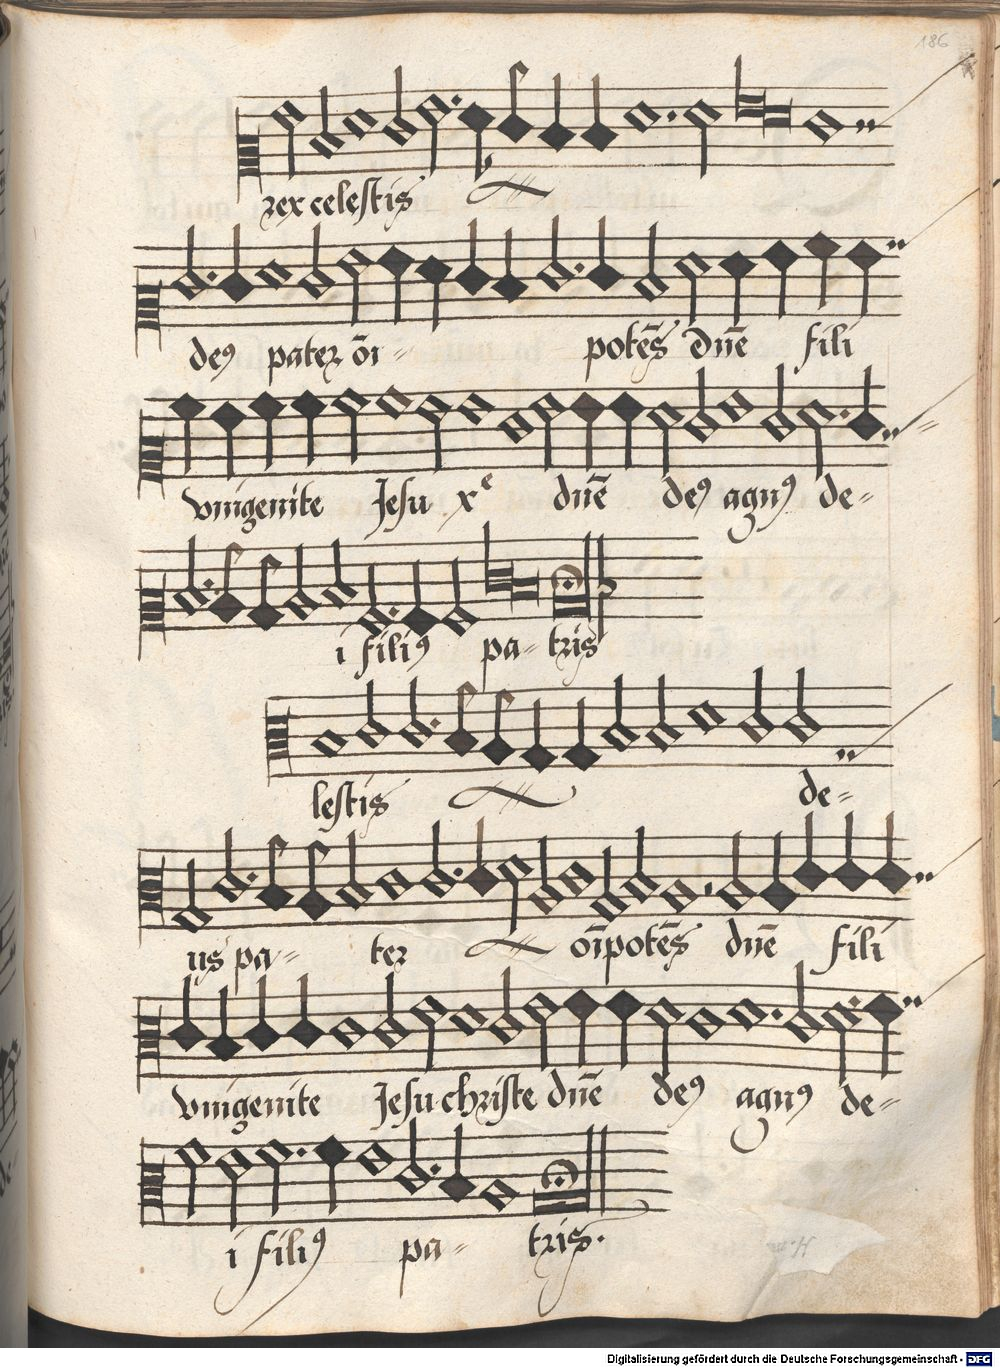 186
rex celestis
deꝰ pater õi- potẽs dnẽ fili
vnigenite Jesu xᵉ dnẽ deꝰ agnꝰ de-
i filiꝰ pa- tris
lestis de-
us pa- ter oĩpotẽs dnẽ fili
vnigenite Jesu christe dnẽ deꝰ agnꝰ de-
i filiꝰ pa- tris.
Digitalisierung gefördert durch die Deutsche Forschungsgemeinschaft - DFG